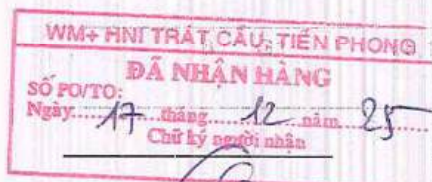 WM+ HNI TRÁT CẦU, TIỀN PHONG
ĐÃ NHẬN HÀNG
SỐ PO/TO:
Ngày 17 tháng 12 năm 25
Chữ ký người nhận